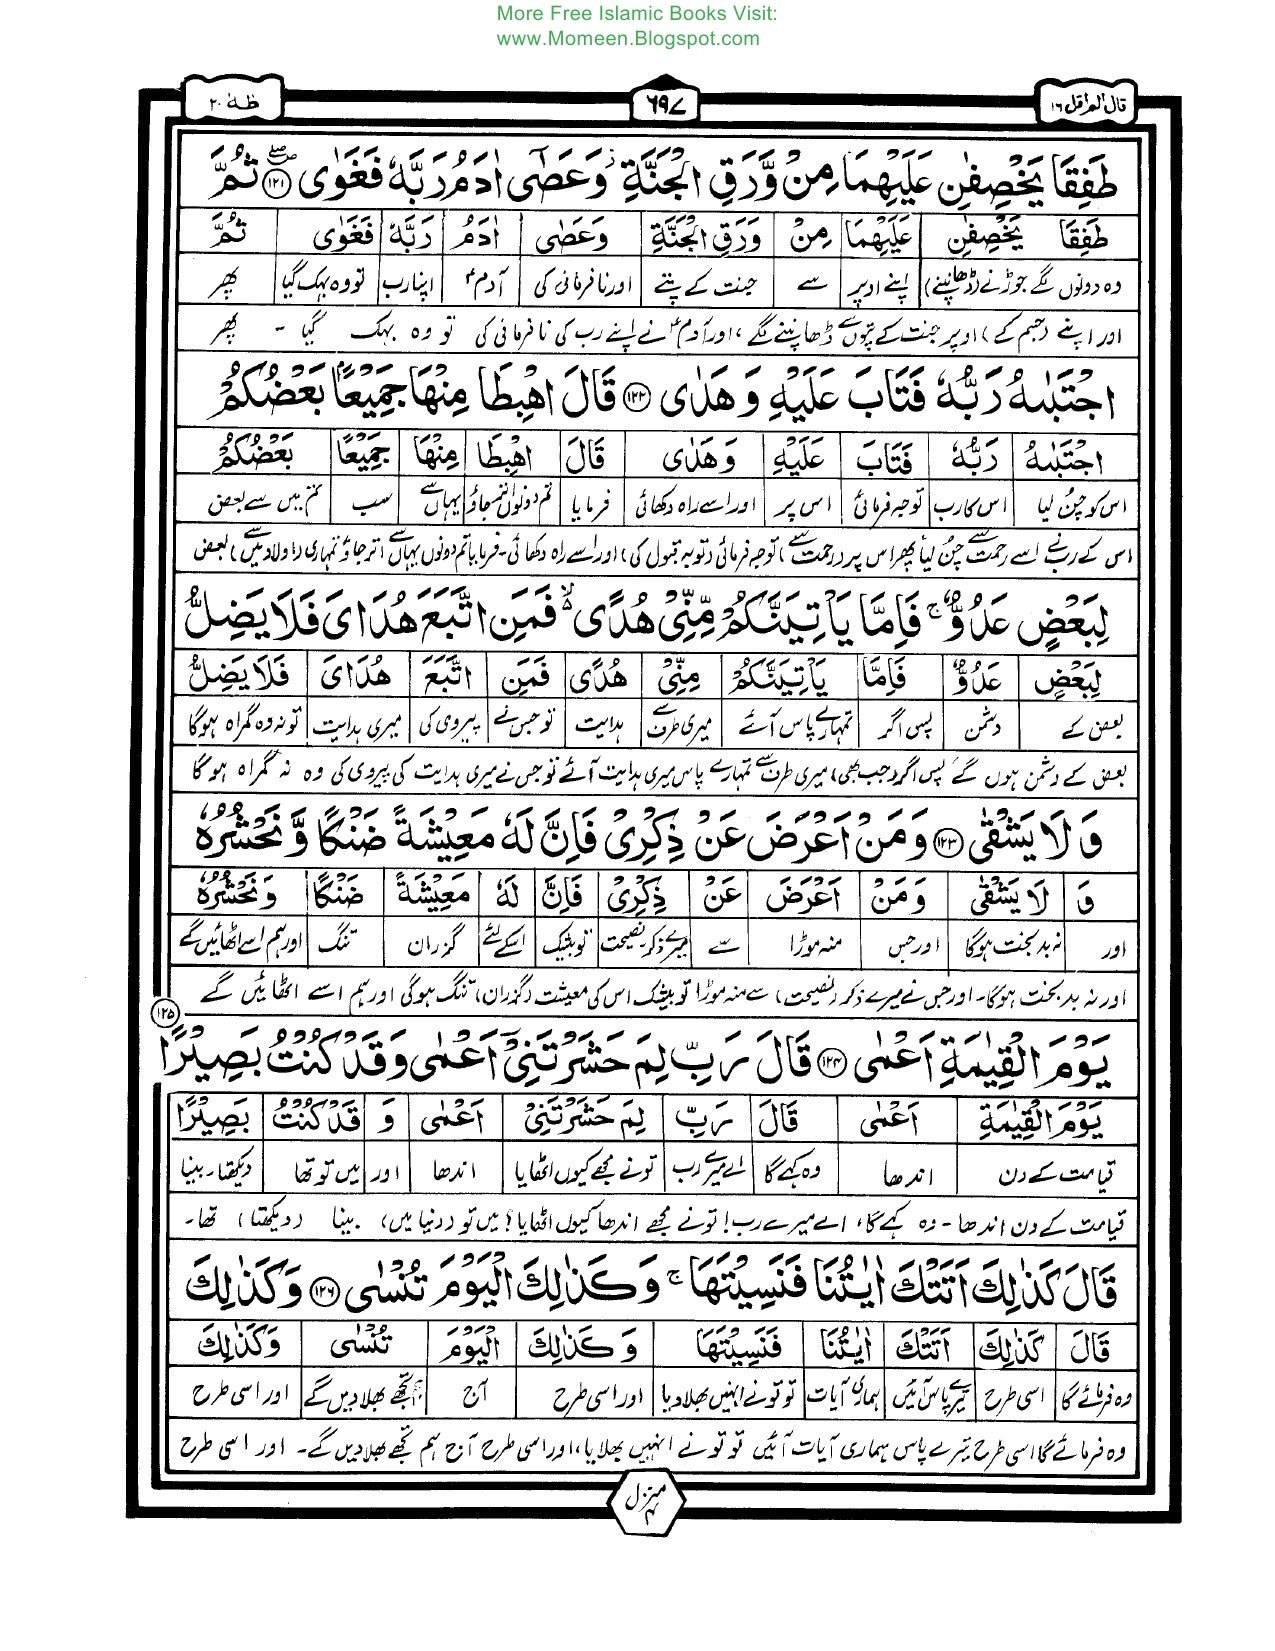 More Free Islamic Books Visit:
www.Momeen.Blogspot.com
قال الم اقل ۱۶
۶۹۷
طٰهٰ ۲۰
طَفِقَا يَخْصِفٰنِ عَلَيْهِمَا مِنْ وَّرَقِ الْجَنَّةِ ؗ وَعَصٰٓى اٰدَمُ رَبَّهٗ فَغَوٰى ۱۲۱ ثُمَّ
طَفِقَا يَخْصِفٰنِ عَلَيْهِمَا مِنْ وَرَقِ الْجَنَّةِ وَعَصٰى اٰدَمُ رَبَّهٗ فَغَوٰى ثُمَّ
وہ دونوں لگے جوڑنے (ڈھانپنے) اپنے اوپر سے جنت کے پتے اور نافرمانی کی آدمؑ اپنا رب تو وہ بہک گیا پھر
اور اپنے (جسم کے) اوپر جنت کے پتوں سے ڈھانپنے لگے، اور آدمؑ نے اپنے رب کی نافرمانی کی تو وہ بہک گیا ۔ پھر
اجْتَبٰىهُ رَبُّهٗ فَتَابَ عَلَيْهِ وَهَدٰى ۱۲۲ قَالَ اهْبِطَا مِنْهَا جَمِيْعًۢا بَعْضُكُمْ
اجْتَبٰىهُ رَبُّهٗ فَتَابَ عَلَيْهِ وَهَدٰى قَالَ اهْبِطَا مِنْهَا جَمِيْعًا بَعْضُكُمْ
اس کو چن لیا اس کا رب توجہ فرمائی اس پر اور اسے راہ دکھائی فرمایا تم دونوں اتر جاؤ یہاں سے سب تم میں سے بعض
اس کے رب نے اسے رحمت سے چن لیا پھر اس پر (رحمت سے) توجہ فرمائی (توبہ قبول کی) اور اسے راہ دکھائی۔ فرمایا تم دونوں یہاں سے اتر جاؤ تمہاری (اولاد میں سے) بعض
لِبَعْضٍ عَدُوٌّ ۚ فَاِمَّا يَاْتِيَنَّكُمْ مِّنِّيْ هُدًى ۙ۬ فَمَنِ اتَّبَعَ هُدَايَ فَلَا يَضِلُّ
لِبَعْضٍ عَدُوٌّ فَاِمَّا يَاْتِيَنَّكُمْ مِنِّيْ هُدًى فَمَنِ اتَّبَعَ هُدَايَ فَلَا يَضِلُّ
بعض کے دشمن پس اگر تمہارے پاس آئے میری طرف سے ہدایت تو جس نے پیروی کی میری ہدایت تو نہ وہ گمراہ ہوگا
بعض کے دشمن ہوں گے پس اگر (جب بھی) میری طرف سے تمہارے پاس میری ہدایت آئے تو جس نے میری ہدایت کی پیروی کی وہ نہ گمراہ ہوگا
وَلَا يَشْقٰى ۱۲۳ وَمَنْ اَعْرَضَ عَنْ ذِكْرِيْ فَاِنَّ لَهٗ مَعِيْشَةً ضَنْكًا وَّنَحْشُرُهٗ
وَ لَا يَشْقٰى وَمَنْ اَعْرَضَ عَنْ ذِكْرِيْ فَاِنَّ لَهٗ مَعِيْشَةً ضَنْكًا وَنَحْشُرُهٗ
اور نہ بدبخت ہوگا اور جس منہ موڑا سے میرے ذکر، نصیحت تو بیشک اسکے لئے گزران تنگ اور ہم اسے اٹھائیں گے
اور نہ بدبخت ہوگا۔ اور جس نے میرے ذکر (نصیحت) سے منہ موڑا تو بیشک اس کی معیشت (گزران) تنگ ہوگی اور ہم اسے اٹھائیں گے
يَوْمَ الْقِيٰمَةِ اَعْمٰى ۱۲۴ قَالَ رَبِّ لِمَ حَشَرْتَنِيْٓ اَعْمٰى وَقَدْ كُنْتُ بَصِيْرًا ۱۲۵
يَوْمَ الْقِيٰمَةِ اَعْمٰى قَالَ رَبِّ لِمَ حَشَرْتَنِيْ اَعْمٰى وَ قَدْ كُنْتُ بَصِيْرًا
قیامت کے دن اندھا وہ کہے گا اے میرے رب تو نے مجھے کیوں اٹھایا اندھا اور میں تو تھا دیکھتا۔ بینا
قیامت کے دن اندھا ۔ وہ کہے گا، اے میرے رب! تو نے مجھے اندھا کیوں اٹھایا؟ میں تو (دنیا میں) بینا (دیکھتا) تھا۔
قَالَ كَذٰلِكَ اَتَتْكَ اٰيٰتُنَا فَنَسِيْتَهَا ۚ وَكَذٰلِكَ الْيَوْمَ تُنْسٰى ۱۲۶ وَكَذٰلِكَ
قَالَ كَذٰلِكَ اَتَتْكَ اٰيٰتُنَا فَنَسِيْتَهَا وَكَذٰلِكَ الْيَوْمَ تُنْسٰى وَكَذٰلِكَ
وہ فرمائے گا اسی طرح تیرے پاس آئیں ہماری آیات تو تو نے انہیں بھلا دیا اور اسی طرح آج ہم تجھے بھلا دیں گے اور اسی طرح
وہ فرمائے گا اسی طرح تیرے پاس ہماری آیات آئیں تو تو نے انہیں بھلایا، اور اسی طرح آج ہم تجھے بھلا دیں گے۔ اور اسی طرح
منزل ۴